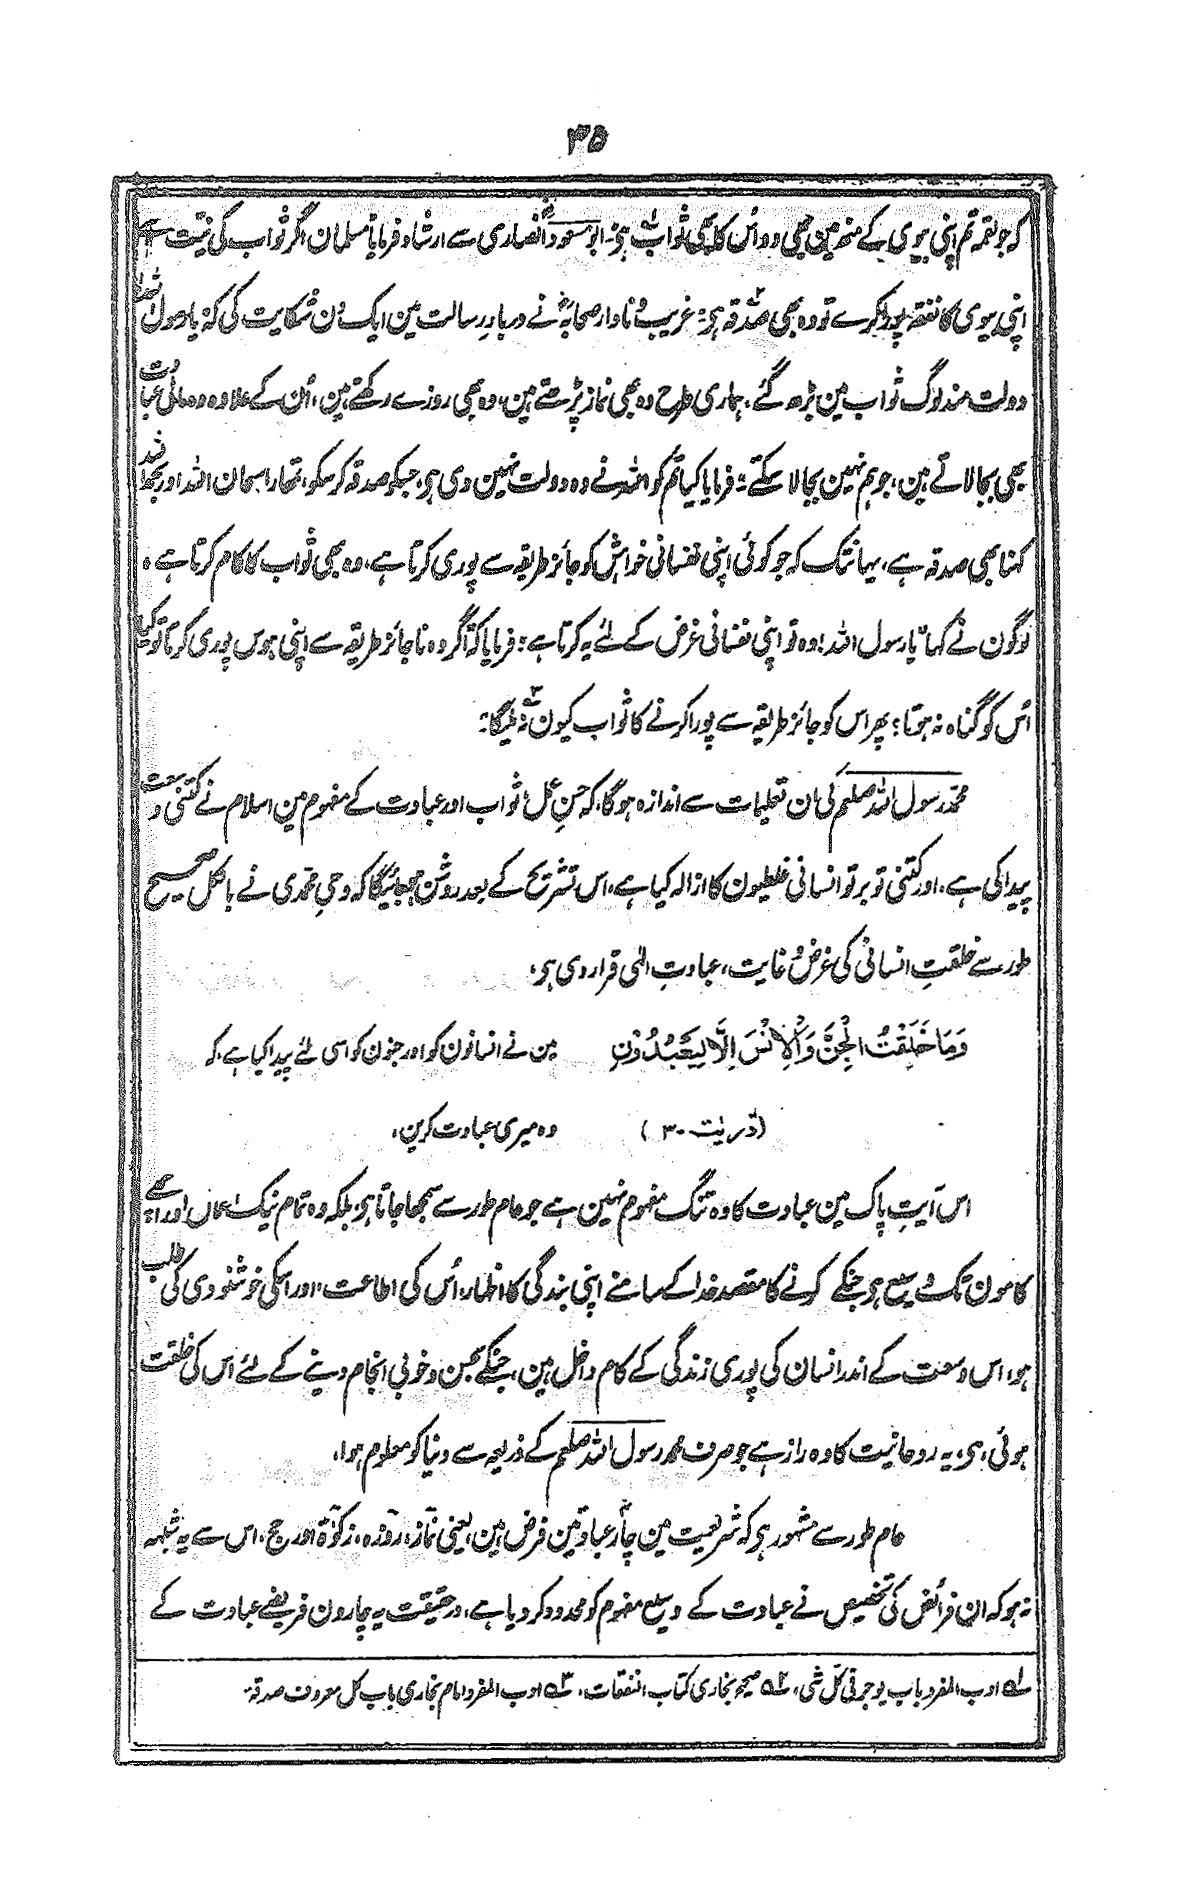 ۳۵
کہ جو لقمہ تم اپنی بیوی کے منہ مین بھی دو اُس کا بھی ثواب ہی، ابو مسعود انصاری سے ارشاد فرمایا مسلمان اگر ثواب کی نیت سے
اپنی بیوی کا نفقہ پورا کرے تو وہ بھی صدقہ ہی، غریب و نادار صحابہؓ نے دربارِ رسالت مین ایک دن شکایت کی کہ یا رسول اللہ
دولت مند لوگ ثواب مین بڑھ گئے، ہماری طرح وہ بھی نماز پڑھتے ہین، وہ بھی روزے رکھتے ہین، اُن کے علاوہ وہ مالی عبادت
بھی بجا لاتے ہین، جو ہم نہین بجا لا سکتے، فرمایا کیا تم کو اللہ نے وہ دولت نہین دی ہی، جسکو صدقہ کر سکو، تمھارا سبحان اللہ اور الحمد للہ
کہنا بھی صدقہ ہے، یہانتک کہ جو کوئی اپنی نفسانی خواہش کو جائز طریقہ سے پوری کرتا ہے، وہ بھی ثواب کا کام کرتا ہے،
لوگون نے کہا "یا رسول اللہ! وہ تو اپنی نفسانی غرض کے لئے یہ کرتا ہے" فرمایا کہ اگر وہ ناجائز طریقہ سے اپنی ہوس پوری کرتا تو کیا
اُس کو گناہ نہ ہوتا؟ پھر اس کو جائز طریقہ سے پورا کرنے کا ثواب کیون نہ ملیگا"
محمد رسول اللہ صلعم کی ان تعلیمات سے اندازہ ہوگا، کہ حسنِ عمل، ثواب اور عبادت کے مفہوم مین اسلام نے کتنی وسعت
پیدا کی ہے، اور کتنی تو بر تو انسانی غلطیون کا ازالہ کیا ہے، اس تشریح کے بعد روشن ہو جائیگا کہ وحیِ محمدی نے بالکل صحیح
طور سے خلقتِ انسانی کی غرض و غایت، عبادتِ الٰہی قرار دی ہی،
وَمَا خَلَقْتُ الْجِنَّ وَالْاِنْسَ اِلَّا لِیَعْبُدُوْنِ مین نے انسانون کو اور جنون کو اسی لئے پیدا کیا ہے، کہ
(ذٰریٰت - ۳) وہ میری عبادت کرین،
اس آیتِ پاک مین عبادت کا وہ تنگ مفہوم نہین ہے جو عام طور سے سمجھا جاتا ہی، بلکہ وہ تمام نیک اعمال اور اچھے
کامون تک وسیع ہی جنکے کرنے کا مقصد خدا کے سامنے اپنی بندگی کا اظہار، اُس کی اطاعت، اور اسکی خوشنودی کی طلب
ہو، اس وسعت کے اندر انسان کی پوری زندگی کے کام داخل ہین، جنکے بحسن و خوبی انجام دینے کے لئے اس کی خلقت
ہوئی، ہی، یہ روحانیت کا وہ راز ہے جو صرف محمد رسول اللہ صلعم کے ذریعہ سے دنیا کو معلوم ہوا،
عام طور سے مشہور ہی کہ شریعت مین چار عبادتین فرض ہین، یعنی نماز، روزہ، زکوٰۃ اور حج، اس سے یہ شبہہ
نہ ہو کہ ان فرائض کی تخصیص نے عبادت کے وسیع مفہوم کو محدود کر دیا ہے، درحقیقت یہ چارون فریضے عبادت کے
۱؎ ادب المفرد باب یوجر فی کل شی، ۲؎ صحیح بخاری کتاب النفقات، ۳؎ ادب المفرد امام بخاری باب کل معروف صدقۃ،